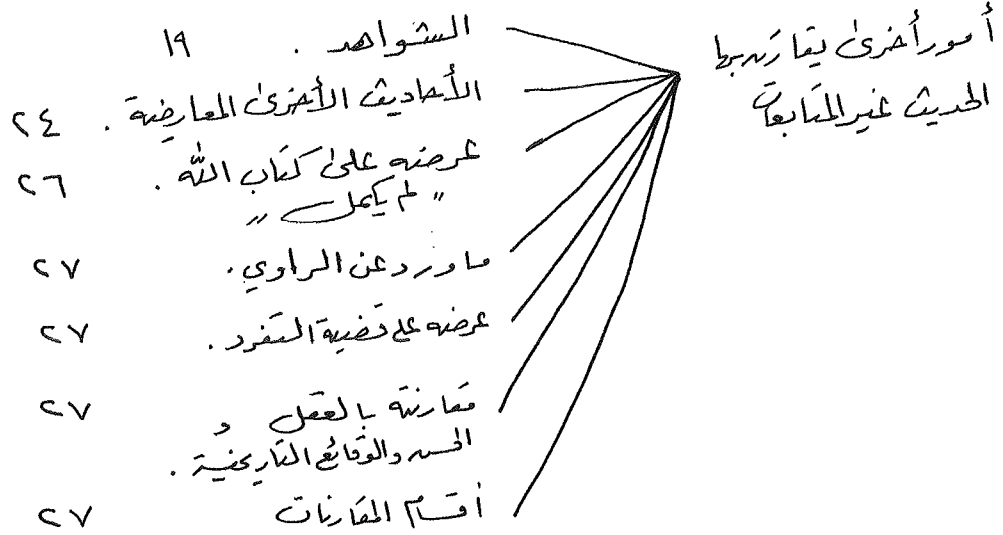 أمور أخرى يقارن بها
الحديث غير المتابعات
الشواهد . ١٩
الأحاديث الأخرى المعارضة . ٢٤
عرضه على كتاب الله . ٢٦
" لم يكمل "
ما ورد عن الراوي . ٢٧
عرضه على قضية التفرد . ٢٧
مقارنته بالعقل و ٢٧
الحس والوقائع التاريخية .
أقسام المقارنات ٢٧